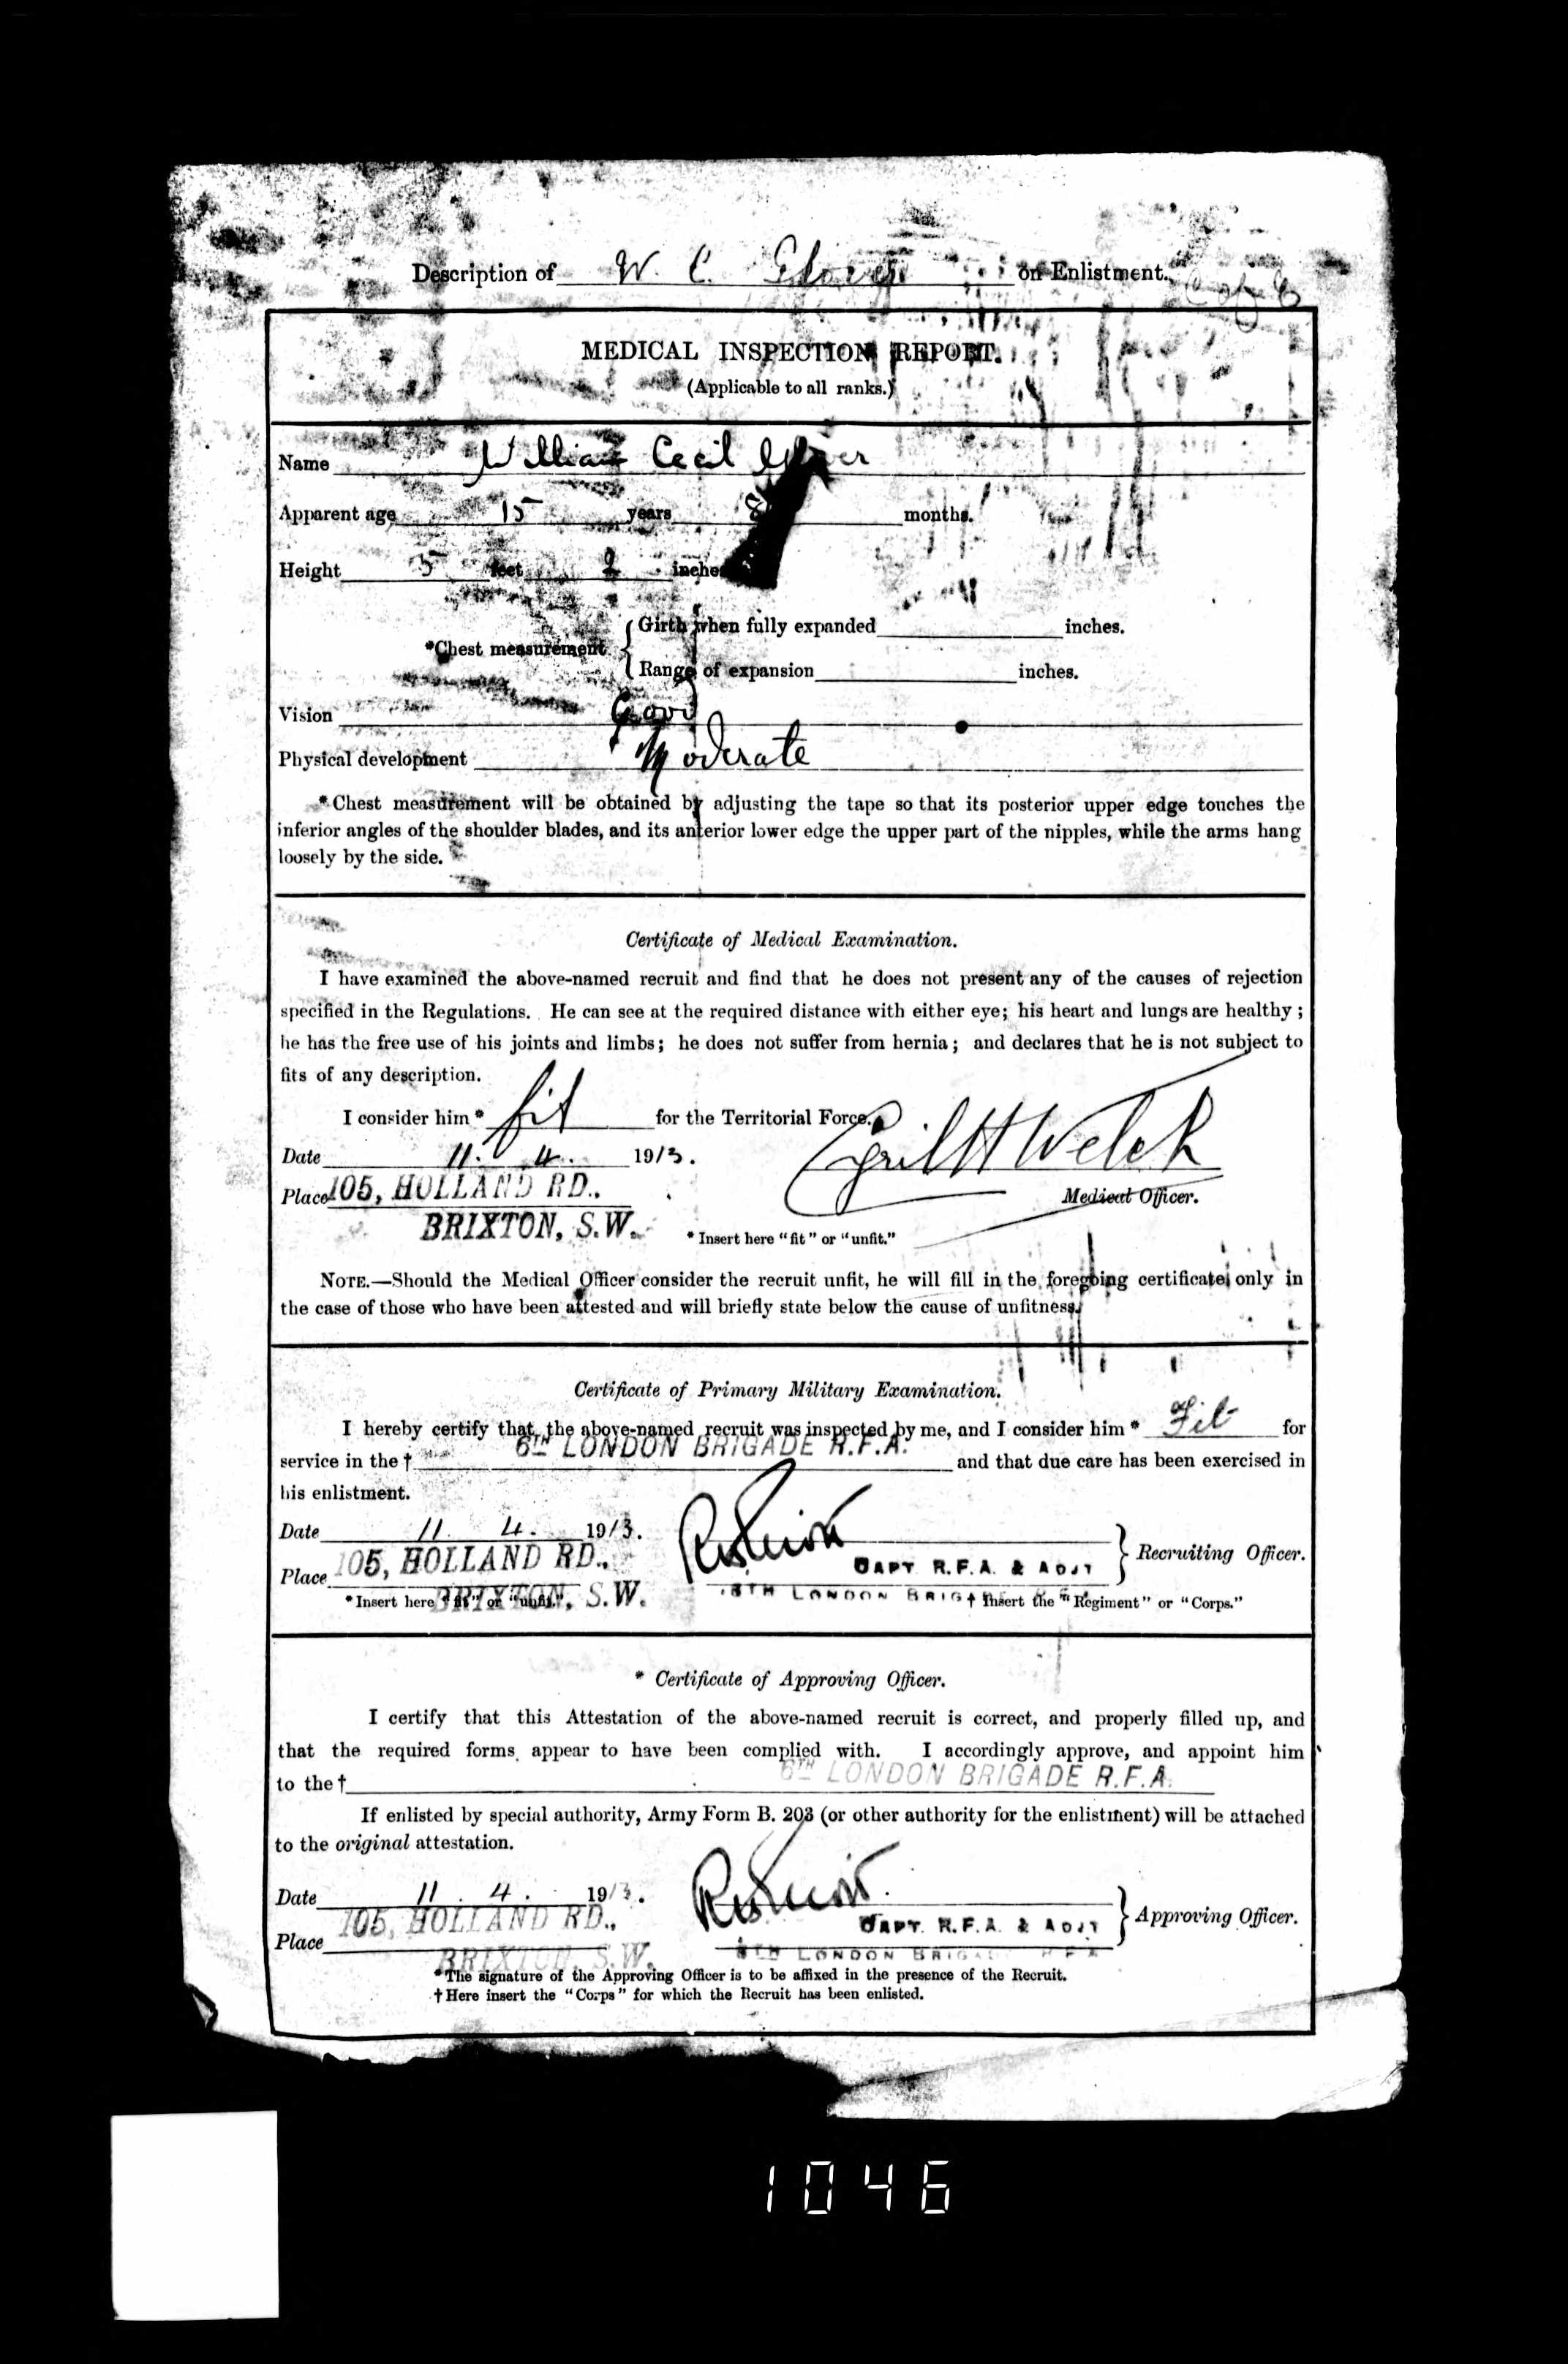 Description of W. C. Glover on Enlistment.
MEDICAL INSPECTION REPORT.
(Applicable to all ranks.)
Name William Cecil Glover
Apparent age 15 years 8 months.
Height 5 feet 2 inches
*Chest measurement { Girth when fully expanded inches.
Range of expansion inches.
Vision Good
Physical development Moderate
* Chest measurement will be obtained by adjusting the tape so that its posterior upper edge touches the
inferior angles of the shoulder blades, and its anterior lower edge the upper part of the nipples, while the arms hang
loosely by the side.
Certificate of Medical Examination.
I have examined the above-named recruit and find that he does not present any of the causes of rejection
specified in the Regulations. He can see at the required distance with either eye; his heart and lungs are healthy;
he has the free use of his joints and limbs; he does not suffer from hernia; and declares that he is not subject to
fits of any description.
I consider him * fit for the Territorial Force.
Date 11. 4. 1913.
Cyril H Welch
Place 105, HOLLAND RD.,
Medical Officer.
BRIXTON, S.W.
* Insert here "fit" or "unfit."
NOTE.—Should the Medical Officer consider the recruit unfit, he will fill in the foregoing certificate only in
the case of those who have been attested and will briefly state below the cause of unfitness.
Certificate of Primary Military Examination.
I hereby certify that the above-named recruit was inspected by me, and I consider him * Fit for
service in the † 6TH LONDON BRIGADE R.F.A. and that due care has been exercised in
his enlistment.
Date 11. 4. 1913.
Place 105, HOLLAND RD.,
CAPT R.F.A. & ADJT } Recruiting Officer.
BRIXTON, S.W.
6TH LONDON BRIG
* Insert here "fit" or "unfit." † Insert the "Regiment" or "Corps."
* Certificate of Approving Officer.
I certify that this Attestation of the above-named recruit is correct, and properly filled up, and
that the required forms appear to have been complied with. I accordingly approve, and appoint him
to the † 6TH LONDON BRIGADE R.F.A.
If enlisted by special authority, Army Form B. 203 (or other authority for the enlistment) will be attached
to the original attestation.
Date 11. 4. 1913.
Place 105, HOLLAND RD.,
CAPT. R.F.A. & ADJT } Approving Officer.
BRIXTON, S.W.
6TH LONDON BRIGA R F A
* The signature of the Approving Officer is to be affixed in the presence of the Recruit.
† Here insert the "Corps" for which the Recruit has been enlisted.
1046